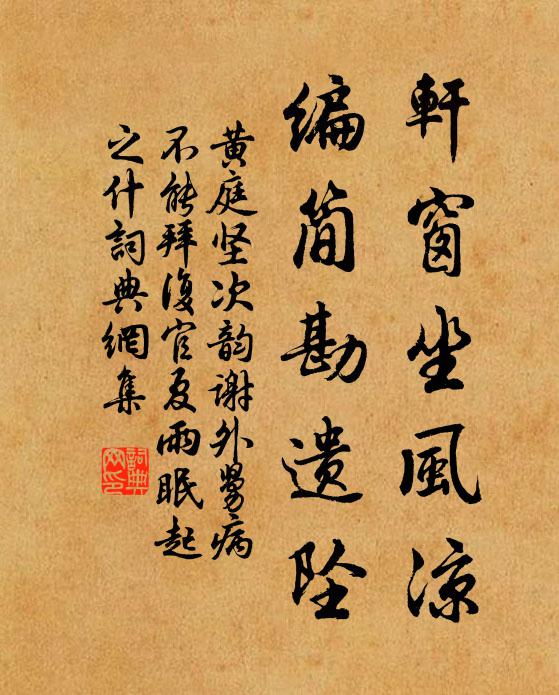 軒窗坐風涼
编简勘遗坠
黄庭坚次韵谢外舅病
不能拜復官夏雨眠起
之什詞典網集
詞典網印